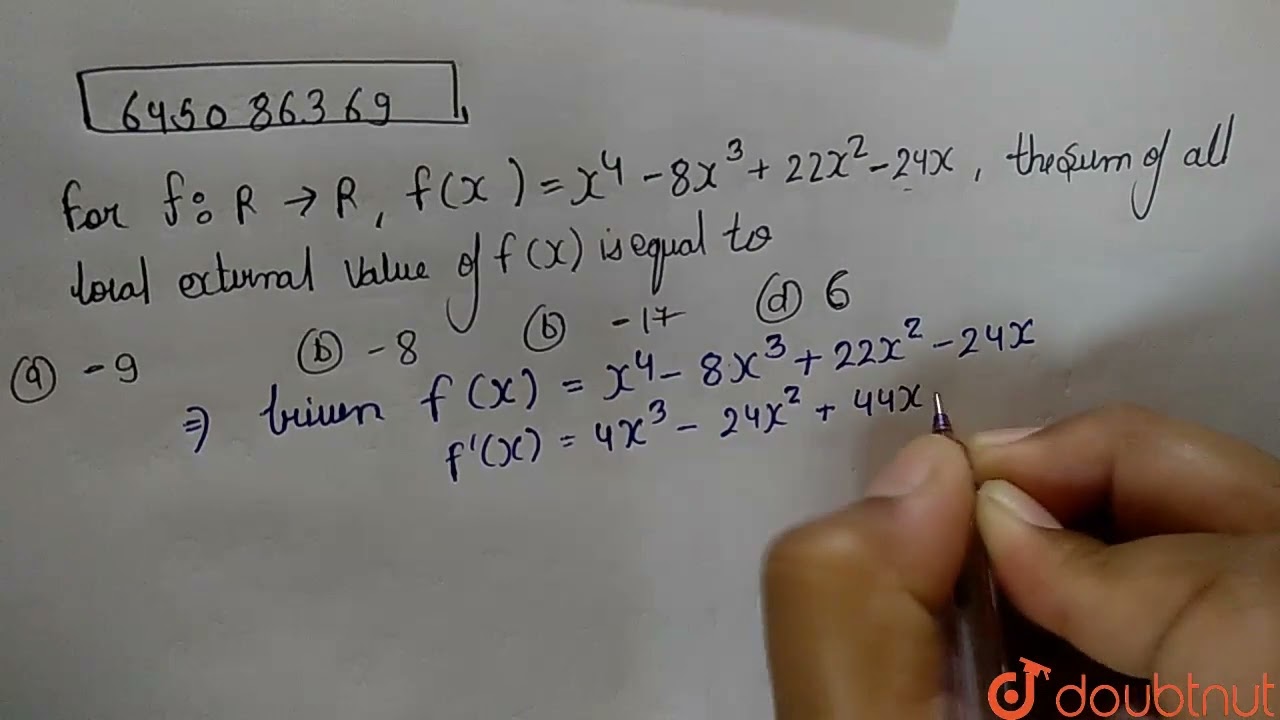 6450 86369
For f: R → R, f(x) = x⁴ - 8x³ + 22x² - 24x, the sum of all
local external value of f(x) is equal to
(a) -9 (b) -8 (b) -17 (d) 6
⇒ Given f(x) = x⁴ - 8x³ + 22x² - 24x
f'(x) = 4x³ - 24x² + 44x
doubtnut